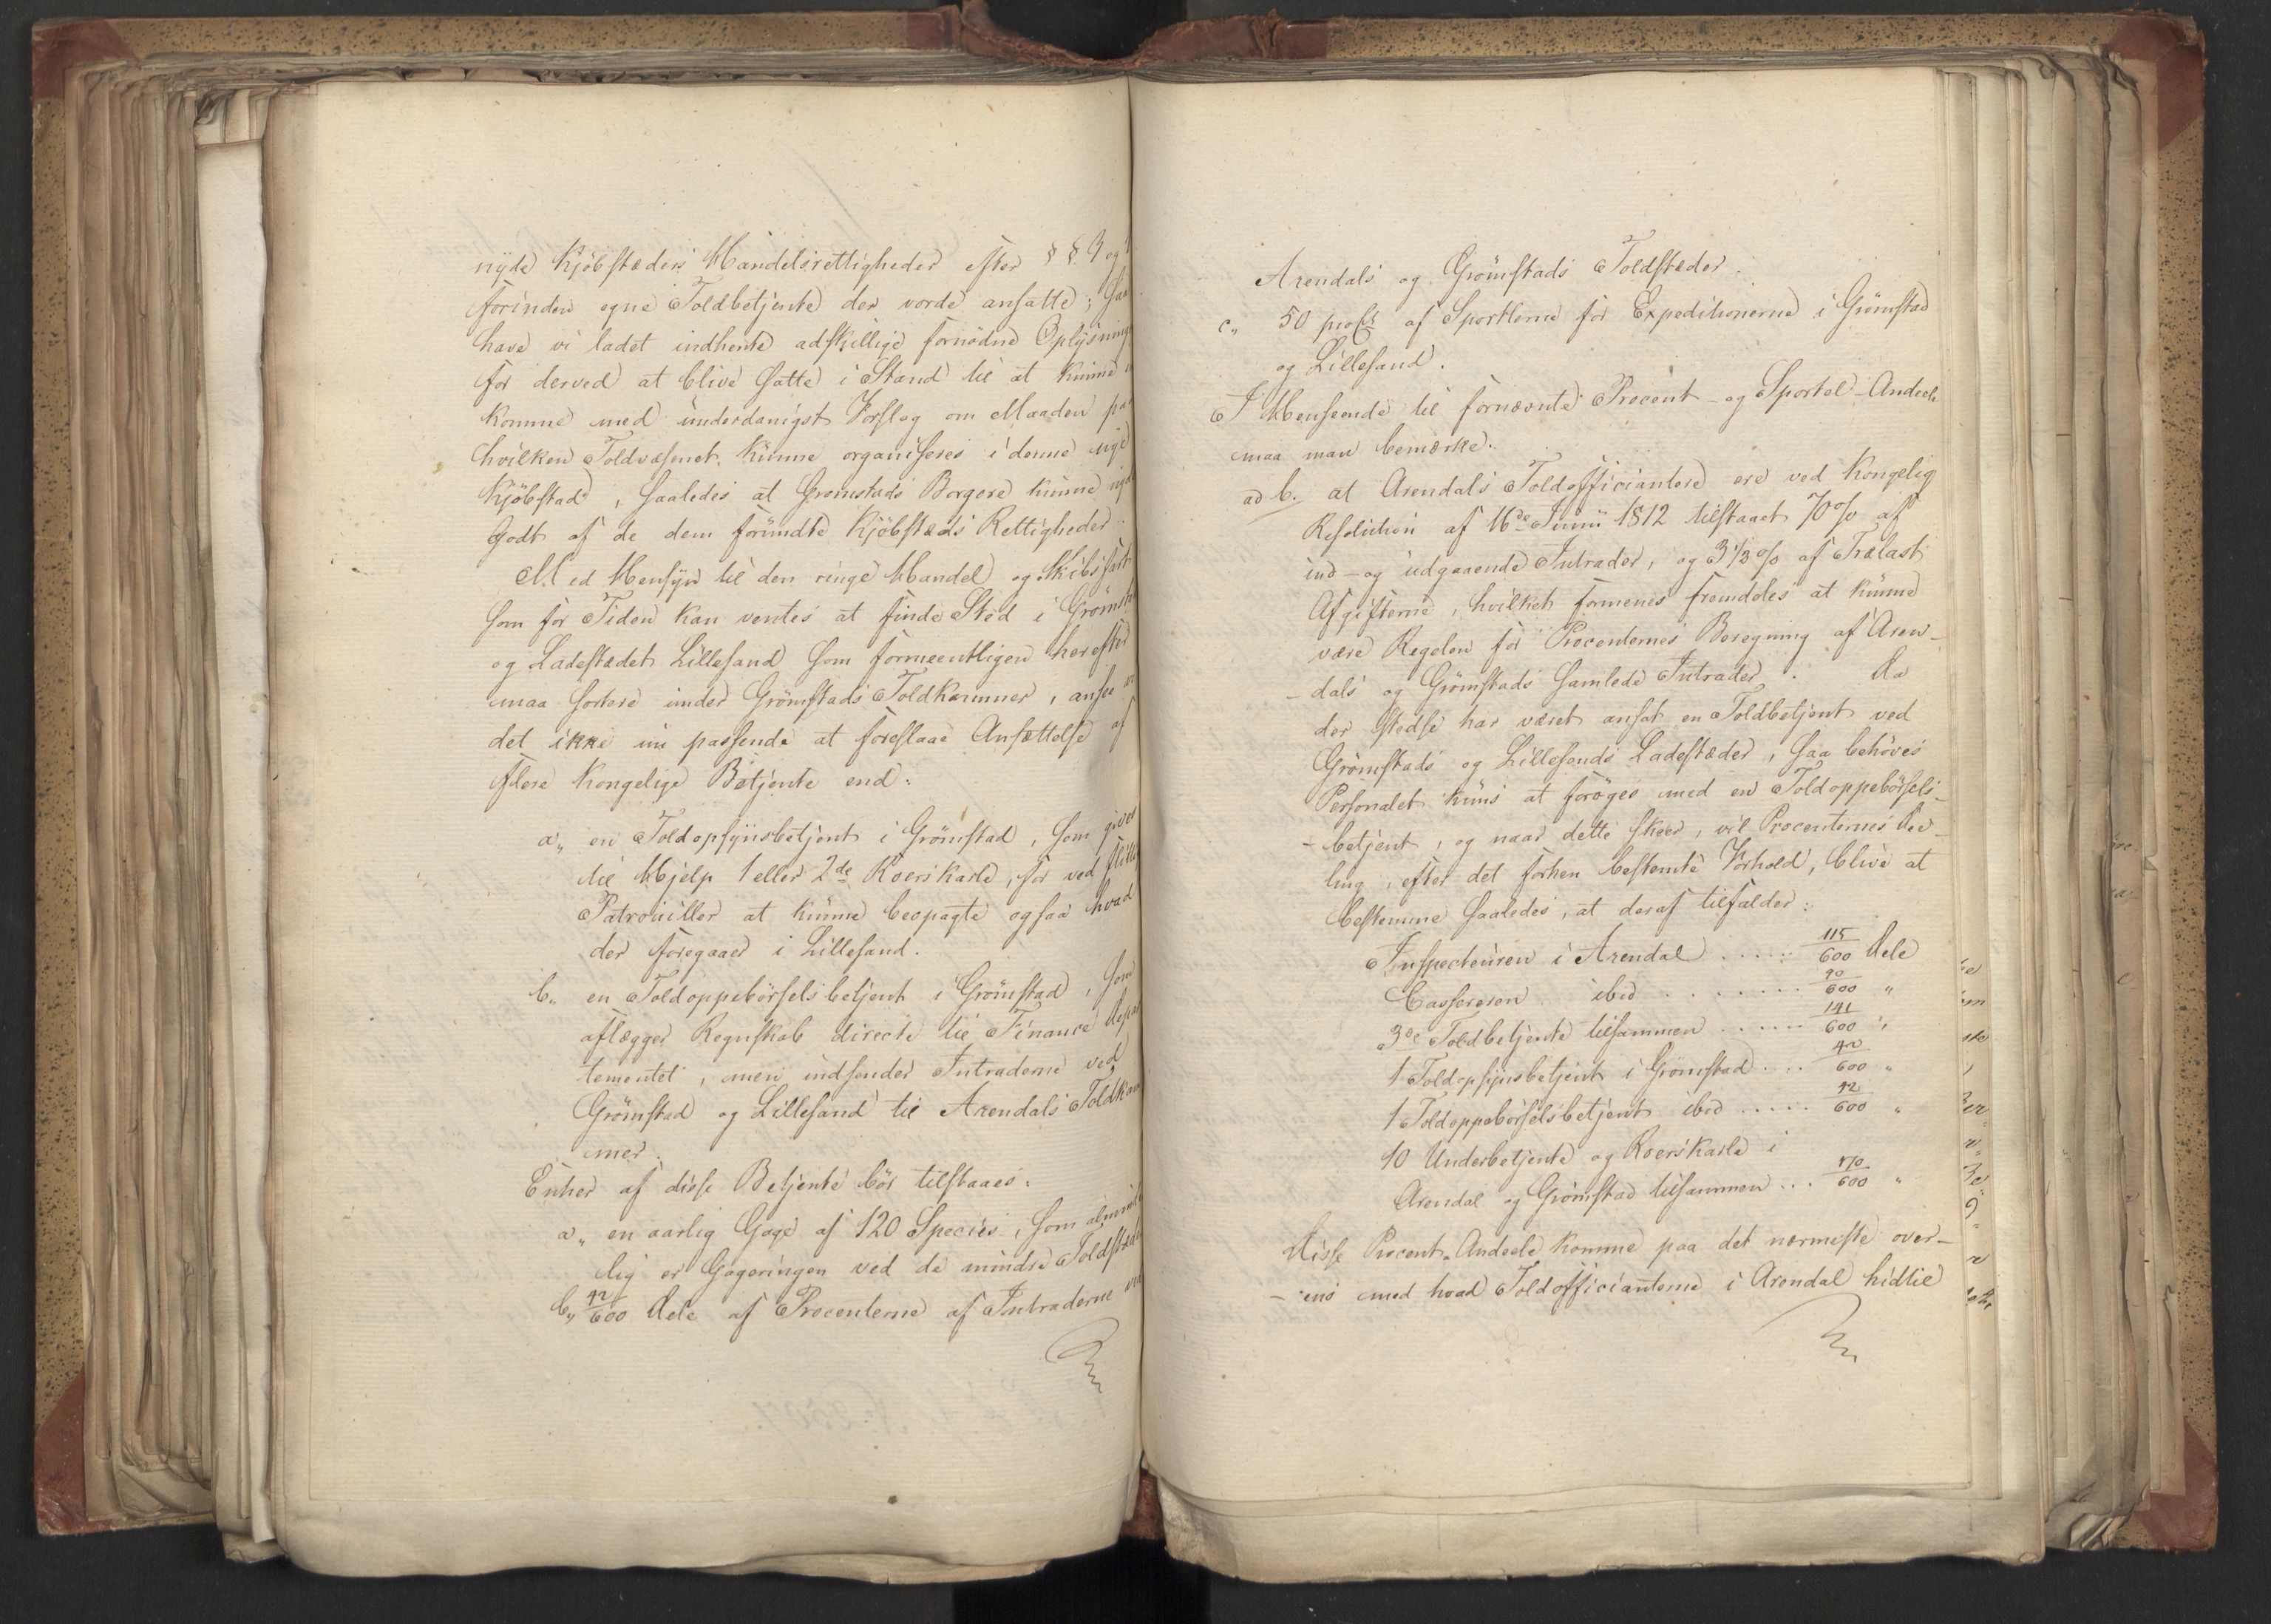 nyde Kjöbstæders Handelsrettigheder efter §§ 3 og
forinden egne Toldbetjente der vorde ansatte; saa
have vi ladet indhente adskillige fornødne Oplysning
for derved at blive satte i Stand til at kunne
komme med underdanigst Forslag om Maaden paa
hvilken Toldvæsenet kunne organiseres i denne nye
Kjöbstad, saaledes at Grömstads Borgere kunne nyde
godt af de dem forundte Kjöbstæds Rettigheder.
Med Hensyn til den ringe Handel og Skibsfart
som for Tiden kan ventes at finde Sted i Grömstad
og Ladestædet Lillesand som formeentligen herefter
maa sortere under Grömstads Toldkammer, ansee vi
det ikke nu passende at foreslaae Ansættelse af
flere Kongelige Betjente end:
a„ en Toldopsynsbetjent i Grömstad, som gives
til Hjelp 1 eller 2de Roerskarle, for ved flittige
Patrouiller at kunne beopagte ogsaa hvad
der foregaaer i Lillesand.
b„ en Toldoppebörselsbetjent i Grömstad, som
aflægger Regnskab directe til Finance Depar
tementet, men indsender Intraderne ved
Grömstad og Lillesand til Arendals Toldkam
mer.
Enhver af disse Betjente bör tilstaaes:
a„ en aarlig Gage af 120 Species, som almind
lig er Gageringen ved de mindre Toldstæder
b„ 42/600 Dele af Procenterne af Intraderne ved
Arendals og Grömstads Toldstæder.
c„ 50 proCt af Sportlerne for Expeditionerne i Grömstad
og Lillesand.
I Henseende til fornævnte Procent- og Sportel-Andeele
maa man bemærke.
ad b. at Arendals Toldofficiantere ere ved Kongelig
Resolution af 16de Junii 1812 tilstaaet 7 0/0 af
ind- og udgaaende Intrader, og 3 1/3 0/0 af Trælast
Afgifterne, hvilket formenes fremdeles at kunne
være Regelen for Procenternes Beregning af Aren-
-dals og Grömstads samlede Intrader. Da
der stedse har været ansat en Toldbetjent ved
Grömstads og Lillesands Ladestæder, saa behöves
Personalet kuns at foröges med en Toldoppebörsels-
-betjent, og naar dette skeer, vil Procenternes Dee-
ling, efter det forhen bestemte Forhold, blive at
bestemme saaledes, at deraf tilfalder:
Inspecteuren i Arendal ..... 115/600 Dele
Cassereren ibid ....... 90/600 „
3de Toldbetjente tilsammen ...... 141/600 „
1 Toldopsynsbetjent i Grömstad ... 42/600 „
1 Toldoppebörselsbetjent ibid ..... 42/600 „
10 Underbetjente og Roerskarle i
Arendal og Grömstad tilsammen ... 170/600 „
Disse Procent-Andeele komme paa det nærmeste over-
-ens med hvad Toldofficianterne i Arendal hidtil